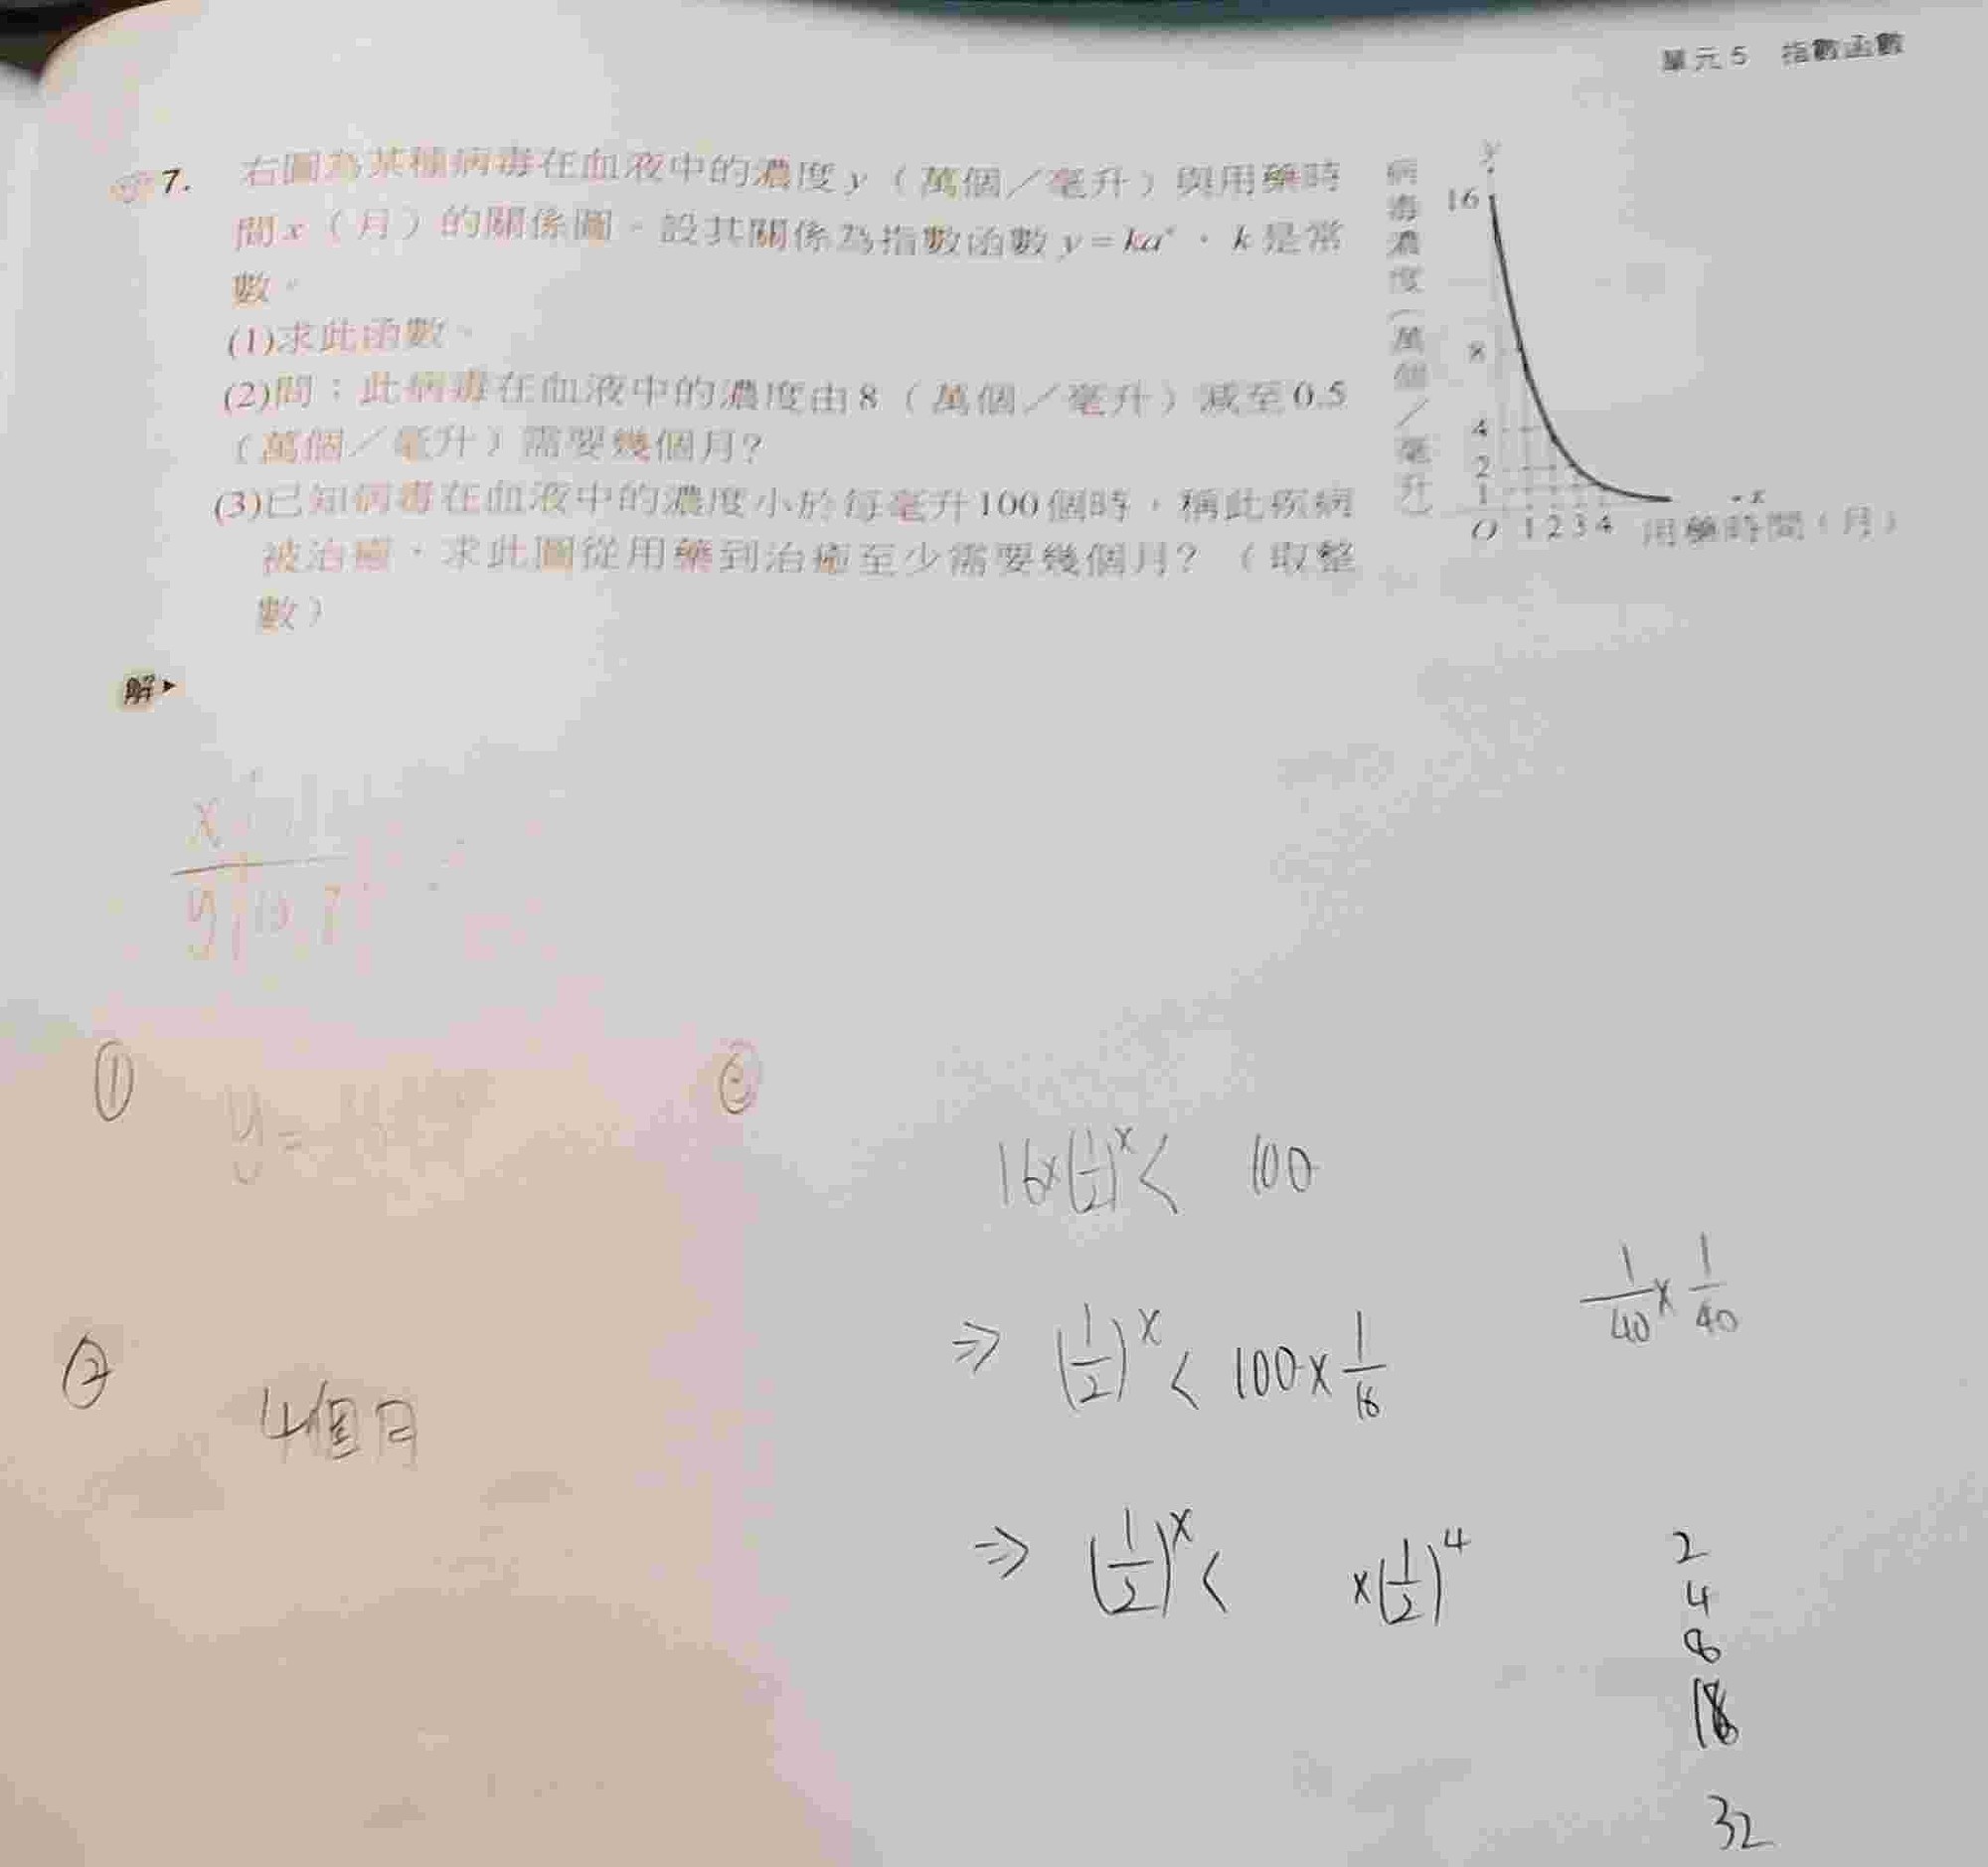 單元5 指數函數
7. 右圖為某種病毒在血液中的濃度y（萬個／毫升）與用藥時
間x（月）的關係圖。設其關係為指數函數y=kaˣ，k是常
數。
(1)求此函數。
(2)問：此病毒在血液中的濃度由8（萬個／毫升）減至0.5
（萬個／毫升）需要幾個月？
(3)已知病毒在血液中的濃度小於每毫升100個時，稱此疾病
被治癒，求此圖從用藥到治癒至少需要幾個月？（取整
數）
病毒濃度（萬個／毫升）
y
16
8
4
2
1
O 1 2 3 4
x
用藥時間（月）
解▶
x
y
①
y=
②
4個月
16×(1/2)ˣ< 100
⇒ (1/2)ˣ < 100×1/16
1/40 × 1/40
⇒ (1/2)ˣ < ×(1/2)⁴
2
4
8
32